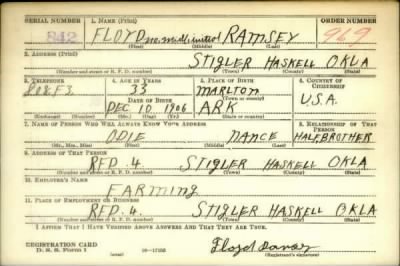 SERIAL NUMBER 1. NAME (Print) ORDER NUMBER
842 FLOYD no middle initial RAMSEY 969
(First) (Middle) (Last)
2. ADDRESS (Print)
STIGLER HASKELL OKLA
(Number and street or R. F. D. number) (Town) (County) (State)
3. TELEPHONE 4. AGE IN YEARS 5. PLACE OF BIRTH 6. COUNTRY OF CITIZENSHIP
808F3 33 MARLTON
DATE OF BIRTH (Town or county)
DEC 10 1906 ARK U.S.A.
(Exchange) (Number) (Mo.) (Day) (Yr.) (State or country)
7. NAME OF PERSON WHO WILL ALWAYS KNOW YOUR ADDRESS 8. RELATIONSHIP OF THAT PERSON
ODIE NANCE HALF BROTHER
(Mr., Mrs., Miss) (First) (Middle) (Last)
9. ADDRESS OF THAT PERSON
RFD. 4. STIGLER HASKELL OKLA
(Number and street or R. F. D. number) (Town) (County) (State)
10. EMPLOYER'S NAME
FARMING
11. PLACE OF EMPLOYMENT OR BUSINESS
RFD. 4. STIGLER HASKELL OKLA
(Number and street or R. F. D. number) (Town) (County) (State)
I AFFIRM THAT I HAVE VERIFIED ABOVE ANSWERS AND THAT THEY ARE TRUE.
REGISTRATION CARD
D. S. S. Form 1 Floyd
(Registrant's signature)